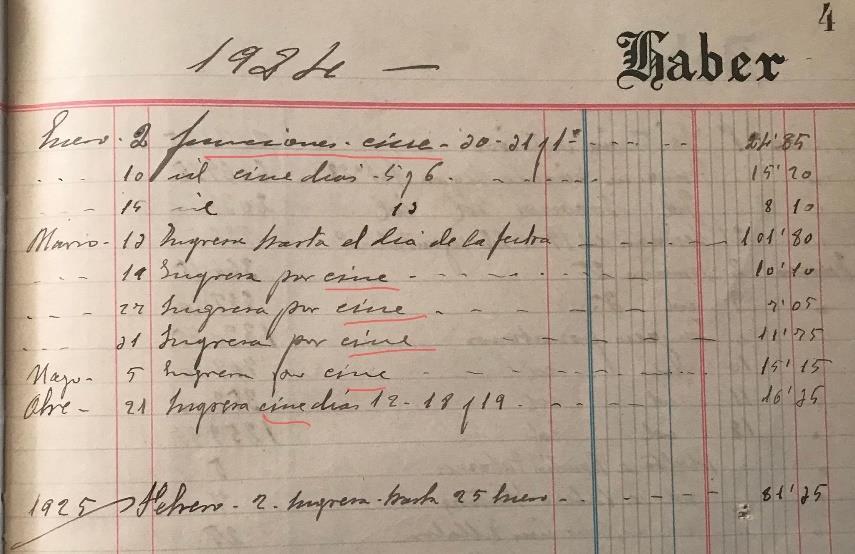 4
1924 — Haber
Enero - 2 funciones - cine - 30 - 31 y 1º - - - - 24'85
- - - 10 id cine dias - 5 y 6 - - - - - 15'20
- - 15 id 13 8 10
Marzo - 13 Ingresa hasta el dia de la fecha - - - - - 101'80
- - - 19 Ingresa por cine - - - - - 10'10
- - - 27 Ingresa por cine - - - - - 7'05
- - - 31 Ingresa por cine - - - - 11'75
Mayo - 5 Ingresa por cine - - - - - 15'15
Obre - 21 Ingresa cine dias 12 - 18 y 19 - - - - 16'35
1925 Febrero - 2 - Ingresa - hasta 25 Enero - - - - - 81'35